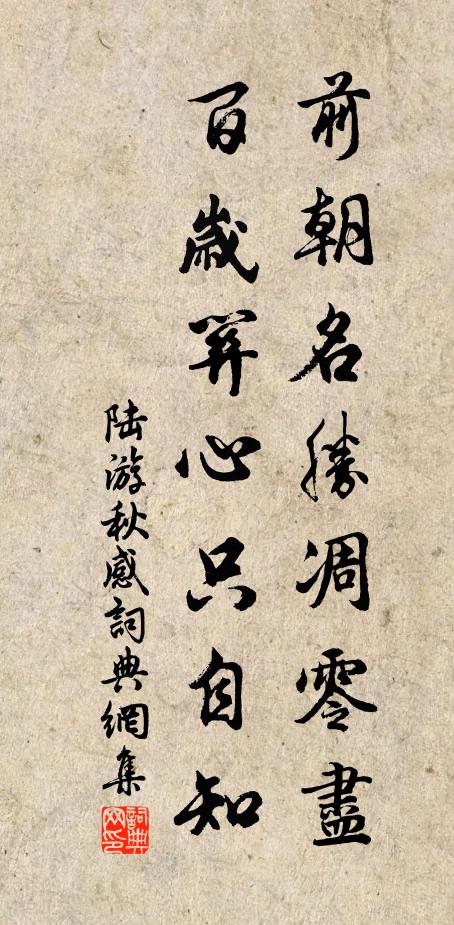 前朝名勝凋零盡
百歲關心只自知
陸游秋感詞典網集
詞典网印